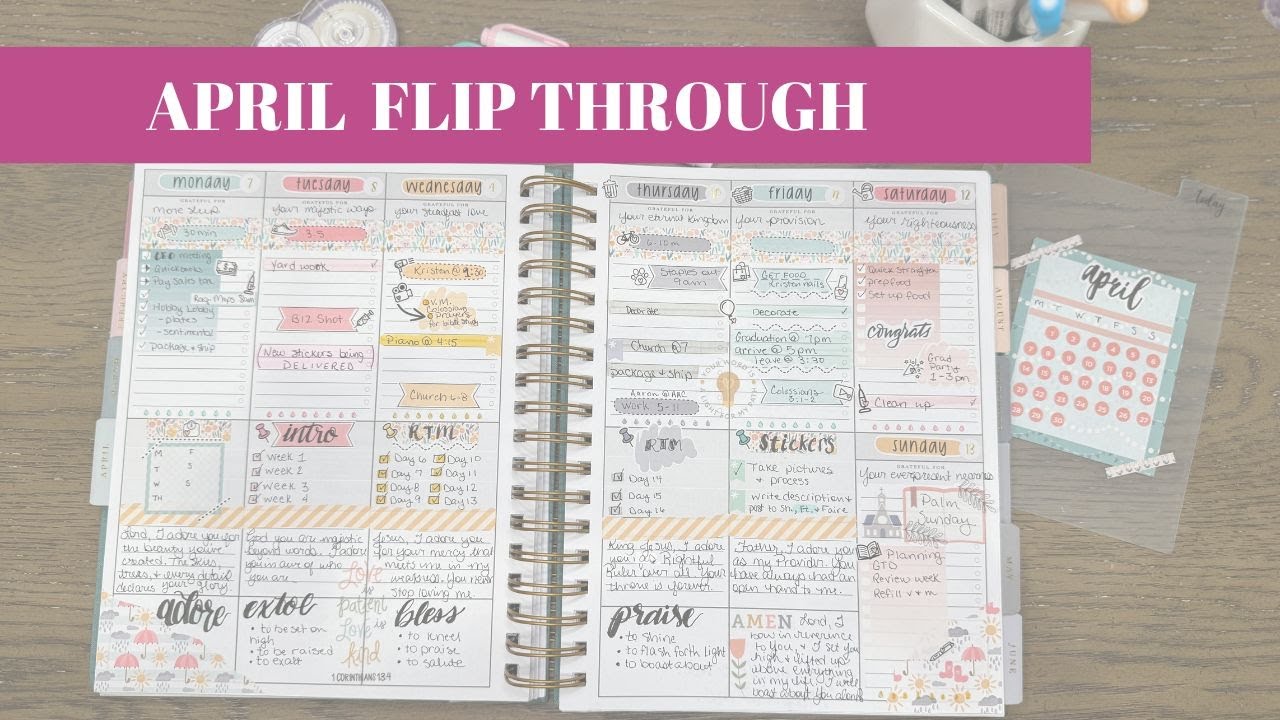 APRIL FLIP THROUGH
monday 7
GRATEFUL FOR
more sleep
30 min
CEO meeting
Quickbooks
Pay sales tax
Rag. Mops 8am
Hobby Lobby
- plates
- sentimental
package & ship
M F
T S
W S
TH
Lord, I adore you for
the beauty you've
created. The skies,
trees, & every detail
declares your glory.
adore
tuesday 8
GRATEFUL FOR
your majestic ways
3.5
yard work
BIZ Shot
New stickers being
DELIVERED
intro
week 1
week 2
week 3
week 4
God you are majestic
beyond words. I adore
you are of who
you are
extol
• to be set on
high
• to be raised
• to exalt
Love
is
patient
Love is
kind
1 CORINTHIANS 13:4
wednesday 9
GRATEFUL FOR
your steadfast love
Kristen @
V.M.
Colossians
Piano @ 4:15
Church 6-8
RTM
Day 6 Day 10
Day 7 Day 11
Day 8 Day 12
Day 9 Day 13
Jesus, I adore you
for your mercy that
meets me in my
You never
stop loving me.
bless
• to kneel
• to praise
• to salute
thursday 10
GRATEFUL FOR
your eternal kingdom
6.10 m
Staples out
9am
Decorate
Church @ 7
package & ship
Aaron @ ARC
Work 5-11
RTM
Day 14
Day 15
Day 16
King Jesus, I adore
you as Rightful
ruler over all. Your
throne is forever.
praise
• to shine
• to flash forth light
• to boast about
friday 11
GRATEFUL FOR
your provision
GET FOOD
Kristen nails
Decorate
Graduation @ 7pm
arrive @ 5 pm
leave @ 3:30
YOUR WORD IS
A LIGHT FOR MY
Colossians
Stickers
Take pictures
& process
write description &
post to Sh., Ft. & Faire
Father, I adore you
as my Provider. You
have always had an
open hand to me.
AMEN Lord, I
bow in reverence
to you. I set you
high & lifted up
above everything
in my life. I will
boast about you alone
saturday 12
GRATEFUL FOR
your righteousness
Quick straighten
prep food
Set up food
congrats
Grad
Party
1-3pm
Clean up
sunday 13
GRATEFUL FOR
your ever present nearness
Palm
Sunday
Planning
GTD
review week
Refill v + m
APRIL
AUGUST
MAY
JUNE
today
april
M T W T F S S
1 2 3 4 5 6
7 8 9 10 11 12 13
14 15 16 17 18 19 20
21 22 23 24 25 26 27
28 29 30